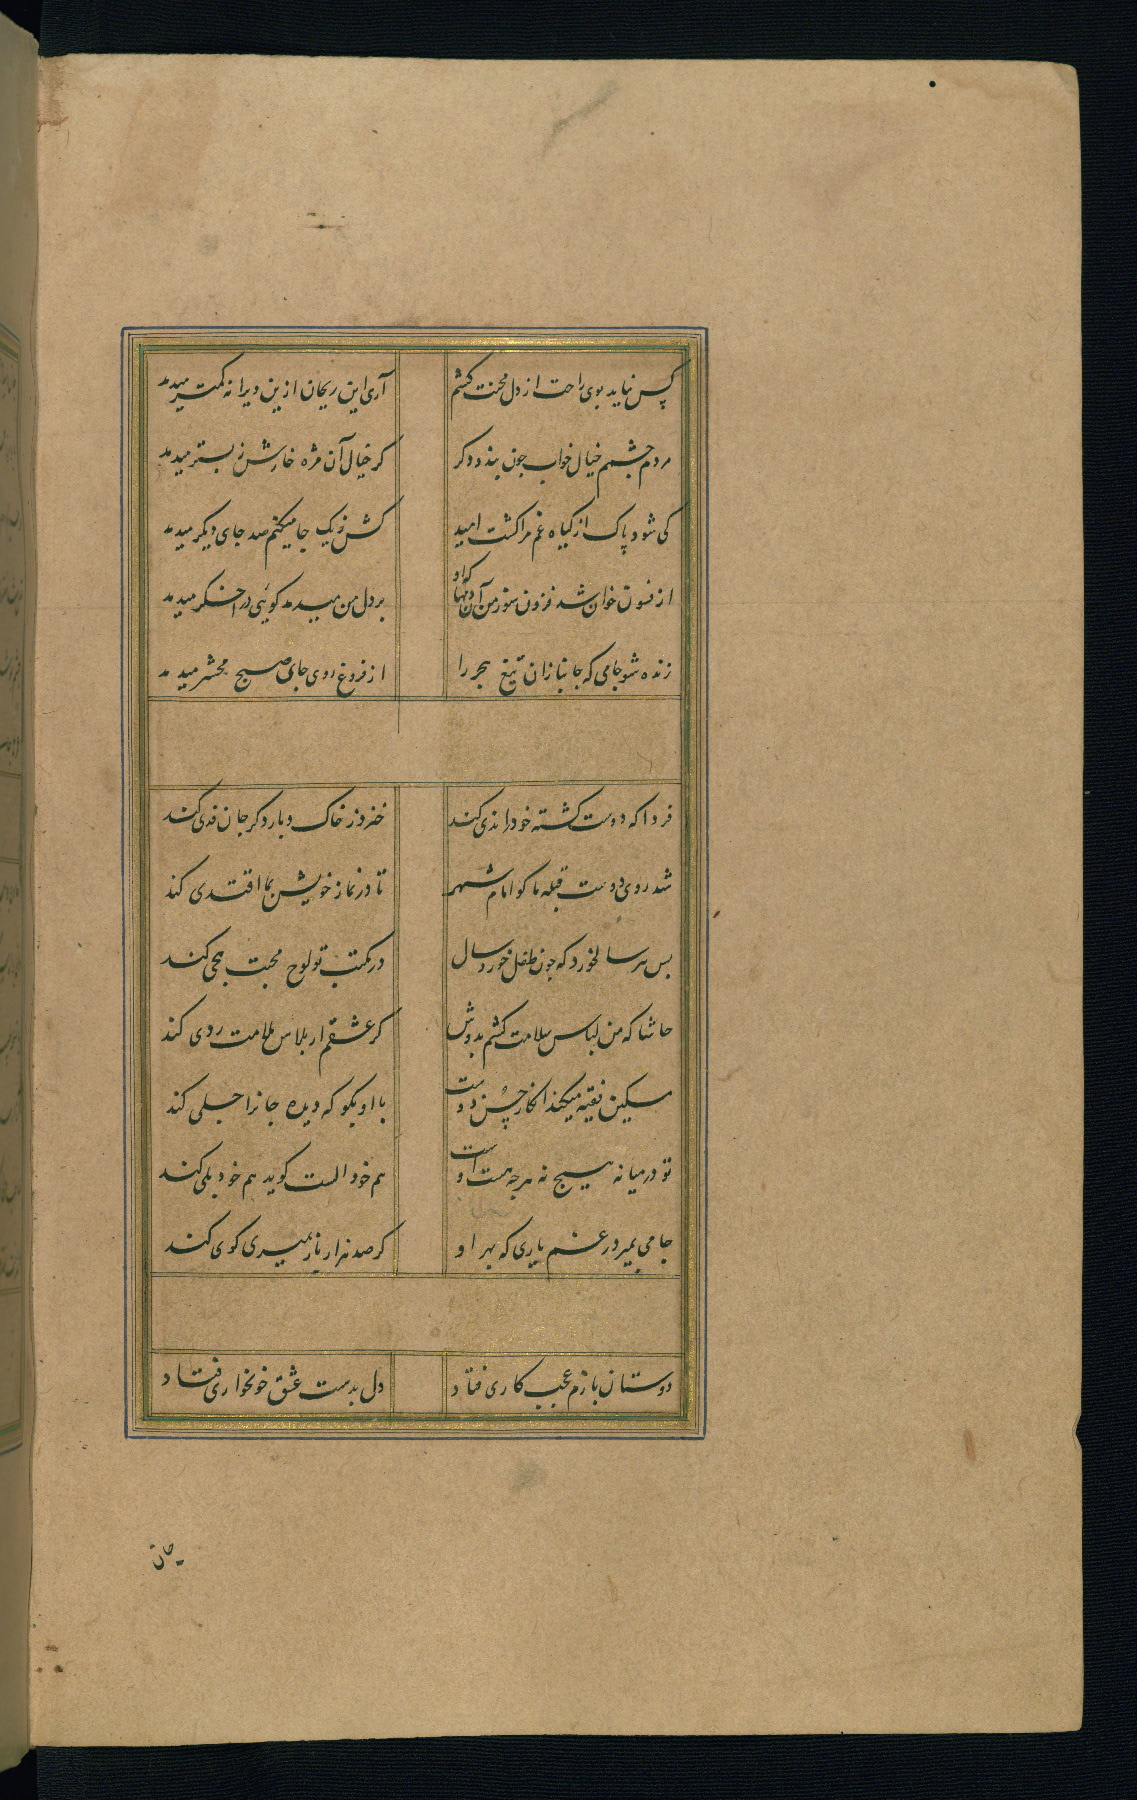 کس نیاید بوی راحت از دل محنت کشم آری این ریحان ازین ویرانه کمتر میدمد
مردم چشمم خیال خواب چون بندد دکر کز خیال آن مژه خارش ز بستر میدمد
کی شود پاک از کیاه غم مرا کشت امید کش ز یک جا میکنم صد جای دیکر میدمد
از فسون خوان شد فزون سوز من آن دمها که او بر دل من میدمد کوئی در اخکر میدمد
زنده شو جامی که جانبازان تیغ هجر را از فروغ روی جانان صبح محشر میدمد
فردا که دوست کشته خود را ندی کند خیزد ز خاک و بار دکر جان فدی کند
شد روی دوست قبله ما کو امام شهر تا در نماز خویش بما اقتدی کند
بس پیر سالخورد که چون طفل خورد سال در مکتب تو لوح محبت هجی کند
حاشا که من لباس سلامت کشم بدوش کر عشقم از پلاس ملامت ردی کند
مسکین فقیه میکند انکار حسن دوست با او بکو که دیده جانرا جلی کند
تو در میانه هیچ نه هر چه هست اوست هم خود الست کوید هم خود بلی کند
جامی بمیر در غم یاری که بهر او کر صد هزار بار بمیری کری کند
دوستان بازم عجب کاری فتاد دل بدست عشق خونخواری فتاد